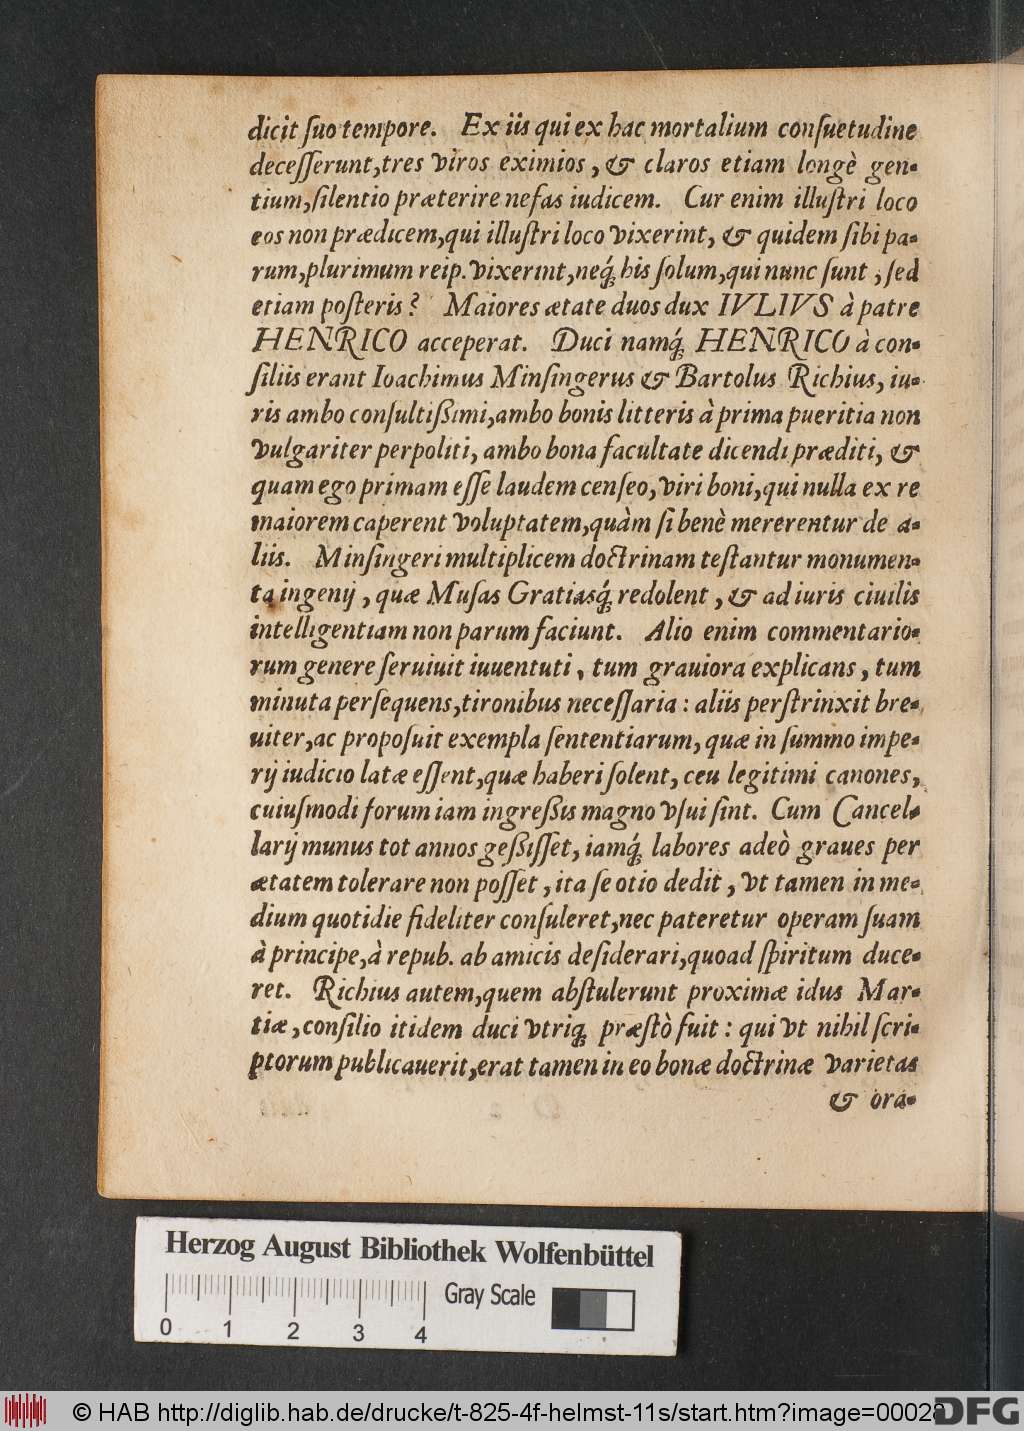 dicit ſuo tempore. Ex iis qui ex hac mortalium conſuetudine
deceſſerunt, tres viros eximios, & claros etiam longè gen-
tium, ſilentio præterire nefas iudicem. Cur enim illuſtri loco
eos non prædicem, qui illuſtri loco vixerint, & quidem ſibi pa-
rum, plurimum reip. vixerint, neq́; his ſolum, qui nunc ſunt, ſed
etiam poſteris? Maiores ætate duos dux IVLIVS à patre
HENRICO acceperat. Duci namq́; HENRICO à con-
ſiliis erant Ioachimus Minſingerus & Bartolus Richius, iu-
ris ambo conſultißimi, ambo bonis litteris à prima pueritia non
vulgariter perpoliti, ambo bona facultate dicendi præditi, &
quam ego primam eſſe laudem cenſeo, viri boni, qui nulla ex re
maiorem caperent voluptatem, quàm ſi benè mererentur de a-
liis. Minſingeri multiplicem doctrinam teſtantur monumen-
ta ingenij, quæ Muſas Gratiasq́; redolent, & ad iuris ciuilis
intelligentiam non parum faciunt. Alio enim commentario-
rum genere ſeruiuit iuuentuti, tum grauiora explicans, tum
minuta perſequens, tironibus neceſſaria: aliis perſtrinxit bre-
uiter, ac propoſuit exempla ſententiarum, quæ in ſummo impe-
rij iudicio latæ eſſent, quæ haberi ſolent, ceu legitimi canones,
cuiuſmodi forum iam ingreßis magno vſui ſint. Cum Cancel-
larij munus tot annos geßiſſet, iamq́; labores adeò graues per
ætatem tolerare non poſſet, ita ſe otio dedit, vt tamen in me-
dium quotidie fideliter conſuleret, nec pateretur operam ſuam
à principe, à repub. ab amicis deſiderari, quoad ſpiritum duce-
ret. Richius autem, quem abſtulerunt proximæ idus Mar-
tiæ, conſilio itidem duci vtriq; præſtò fuit: qui vt nihil ſcri-
ptorum publicauerit, erat tamen in eo bonæ doctrinæ varietas
& ora-
Herzog August Bibliothek Wolfenbüttel
Gray Scale
0 1 2 3 4
© HAB http://diglib.hab.de/drucke/t-825-4f-helmst-11s/start.htm?image=00028
DFG